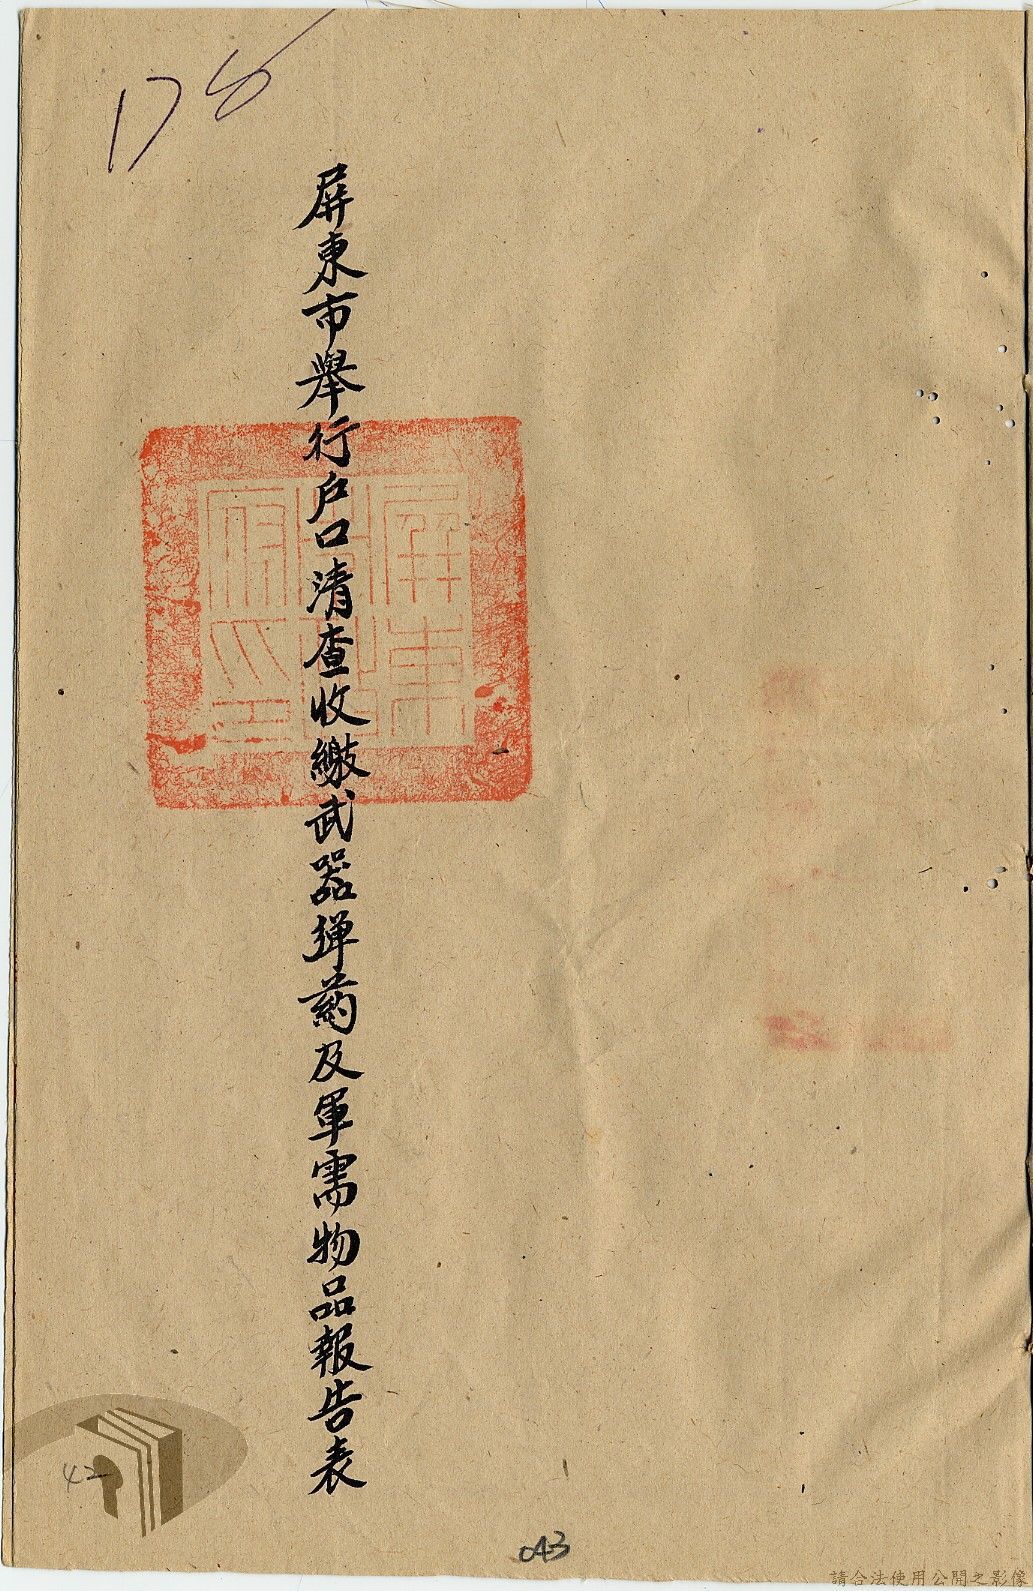 屏東市舉行戶口清查收繳武器弹药及軍需物品報告表
屏東市政府之印
178
42
043
請合法使用公開之影像